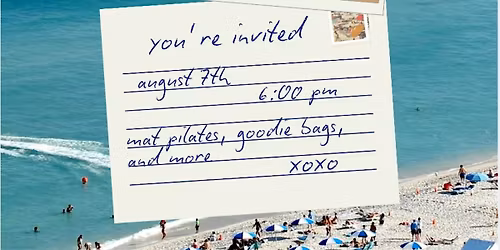 you're invited
august 7th
6:00 pm
mat pilates, goodie bags,
and more
xoxo